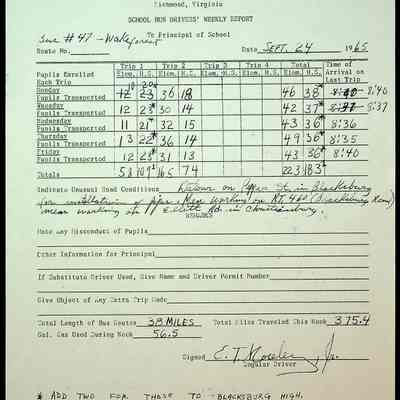 Richmond, Virginia
SCHOOL BUS DRIVERS' WEEKLY REPORT
To Principal of School
Bus #47 - Wakeforest
Route No. Date SEPT. 24 1965
Trip 1 Trip 2 Trip 3 Trip 4 Total Time of
Pupils Enrolled Elem. H.S. Elem. H.S. Elem. H.S. Elem. H.S. Elem. H.S. Arrival on
Each Trip Last Trip
Monday
Pupils Transported 10 23 36 18 46 38* 8:40
Tuesday
Pupils Transported 12 23* 30 14 42 37* 8:37
Wednesday
Pupils Transported 11 21* 32 15 43 36* 8:36
Thursday
Pupils Transported 13 22* 36 14 49 36* 8:35
Friday
Pupils Transported 12 23* 31 13 43 36* 8:40
Totals 58 165 74 223 183*
Indicate Unusual Road Conditions Detour on Pepper St. in Blacksburg
for installation of pipe. Men working on RT. 460 (Blacksburg
men working at Elliott Rd. in Christiansburg.
REMARKS
Note any Misconduct of Pupils
Other Information for Principal
If Substitute Driver Used, Give Name and Driver Permit Number
Give Object of Any Extra Trip Made
Total Length of Bus Routes 38 MILES Total Miles Traveled This Week 375.4
Gal. Gas Used During Week 56.5
Signed E. T. Mosley, Jr.
Regular Driver
* ADD TWO FOR THOSE TO BLACKSBURG HIGH.